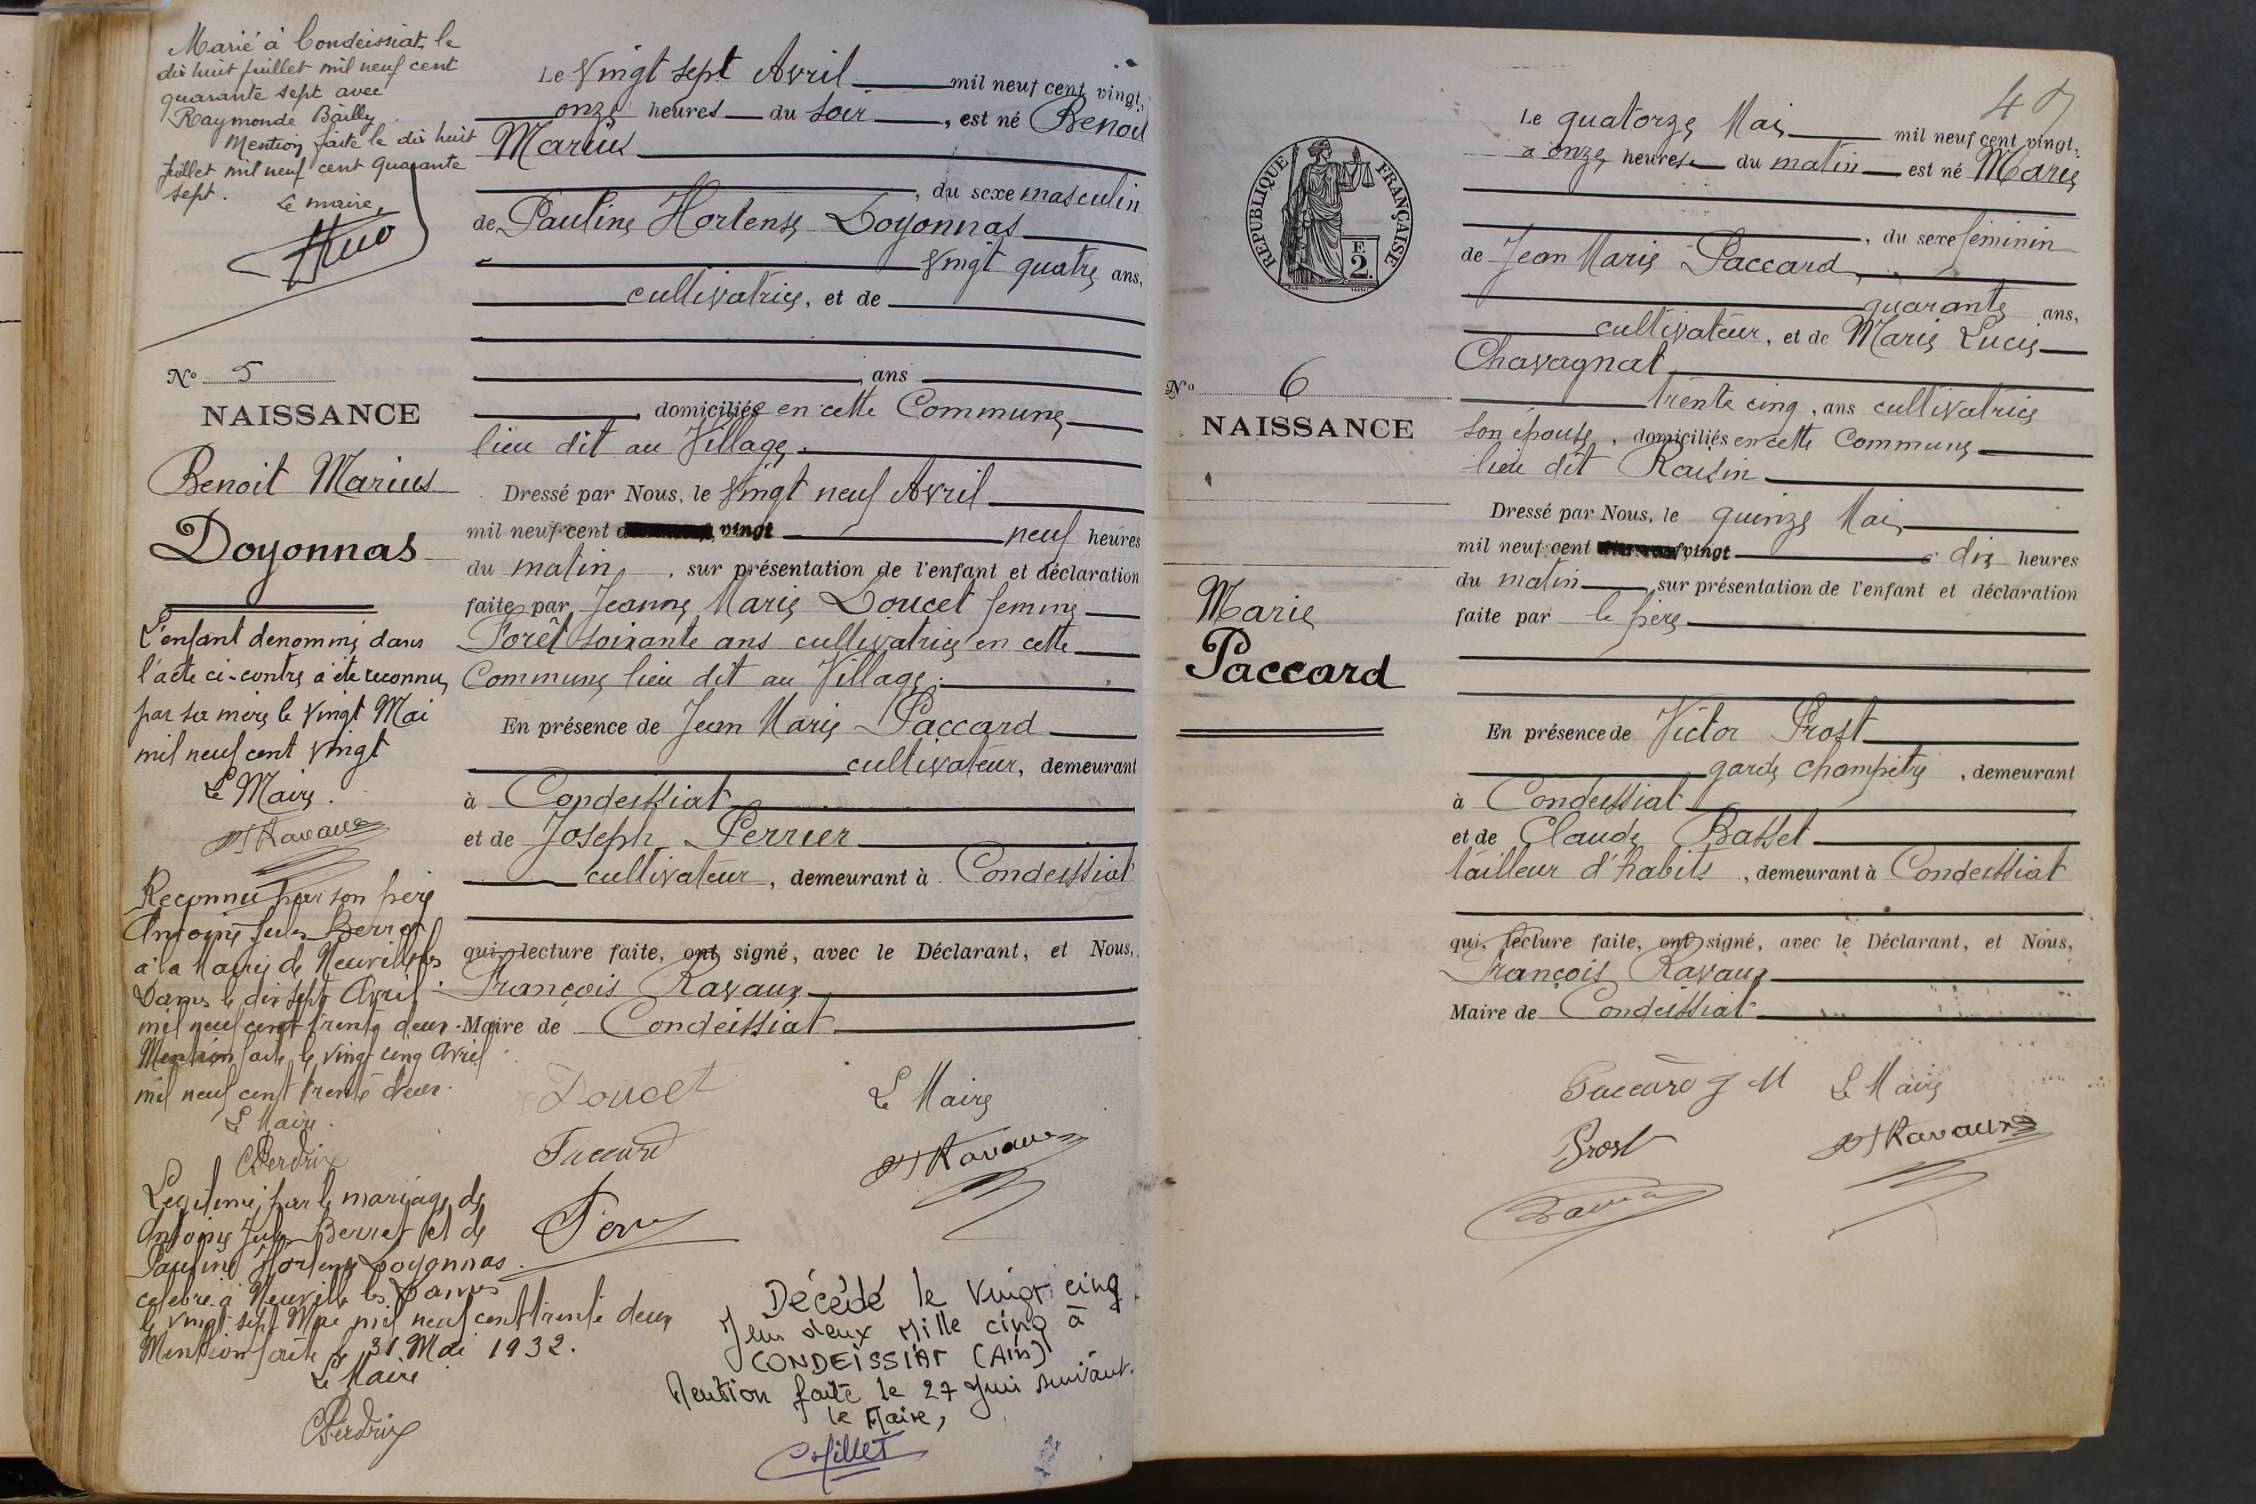 Marié à Condeissiat le
dix huit juillet mil neuf cent
quarante sept avec
Raymonde Bailly.
Mention faite le dix huit
juillet mil neuf cent quarante
sept.
Le maire,
N° 5
NAISSANCE
Benoit Marius
Doyonnas
L'enfant denommé dans
l'acte ci-contre a été reconnu
par sa mère le vingt Mai
mil neuf cent vingt
Le Maire.
Ravaux
Reconnu par son père
Antoine Jules Berret
a la Mairie de Neuville les
Dames le dix sept Avril
mil neuf cent trente deux.
Mention faite le vingt cinq Avril
mil neuf cent trente deux.
Le Maire.
CPerdrix
Legitimé par le mariage de
Antoine Jules Berret et de
Pauline Hortense Doyonnas.
celebré à Neuville les Dames
le vingt sept Mai mil neuf cent trente deux
Mention faite le 31 Mai 1932.
Le Maire
CPerdrix
Le vingt sept Avril mil neuf cent vingt,
onze heures du soir, est né Benoit
Marius
, du sexe masculin
de Pauline Hortense Doyonnas
vingt quatre ans,
cultivatrice, et de
, ans
, domiciliée en cette Commune
lieu dit au Village.
Dressé par Nous, le vingt neuf Avril
mil neuf cent vingt neuf heures
du matin, sur présentation de l'enfant et déclaration
faite par Jeanne Marie Doucet femme
Forêt soixante ans cultivatrice en cette
Commune lieu dit au Village.
En présence de Jean Marie Paccard
cultivateur, demeurant
à Condeissiat
et de Joseph Perrier
cultivateur, demeurant à Condeissiat
qui, lecture faite, ont signé, avec le Déclarant, et Nous,
François Ravaux
Maire de Condeissiat
Doucet
Le Maire
Paccard
Ravaux
Décédé le vingt cinq
Juin deux mille cinq à
CONDEISSIAT (Ain)
Mention faite le 27 Juin suivant.
le Maire,
RÉPUBLIQUE FRANÇAISE
F.
2.
N° 6
NAISSANCE
Marie
Paccard
Le quatorze Mai mil neuf cent vingt,
à onze heures du matin est né Marie
, du sexe féminin
de Jean Marie Paccard,
quarante ans,
cultivateur, et de Marie Lucie
Chavagnat
trente cinq, ans cultivatrice
son épouse, domiciliés en cette Commune
lieu dit Raisin
Dressé par Nous, le quinze Mai
mil neuf cent vingt à dix heures
du matin, sur présentation de l'enfant et déclaration
faite par le père
En présence de Victor Prost
garde champêtre, demeurant
à Condeissiat
et de Claude Basset
tailleur d'habits, demeurant à Condeissiat
qui, lecture faite, ont signé, avec le Déclarant, et Nous,
François Ravaux
Maire de Condeissiat
Paccard J M
Le Maire
Prost
Ravaux